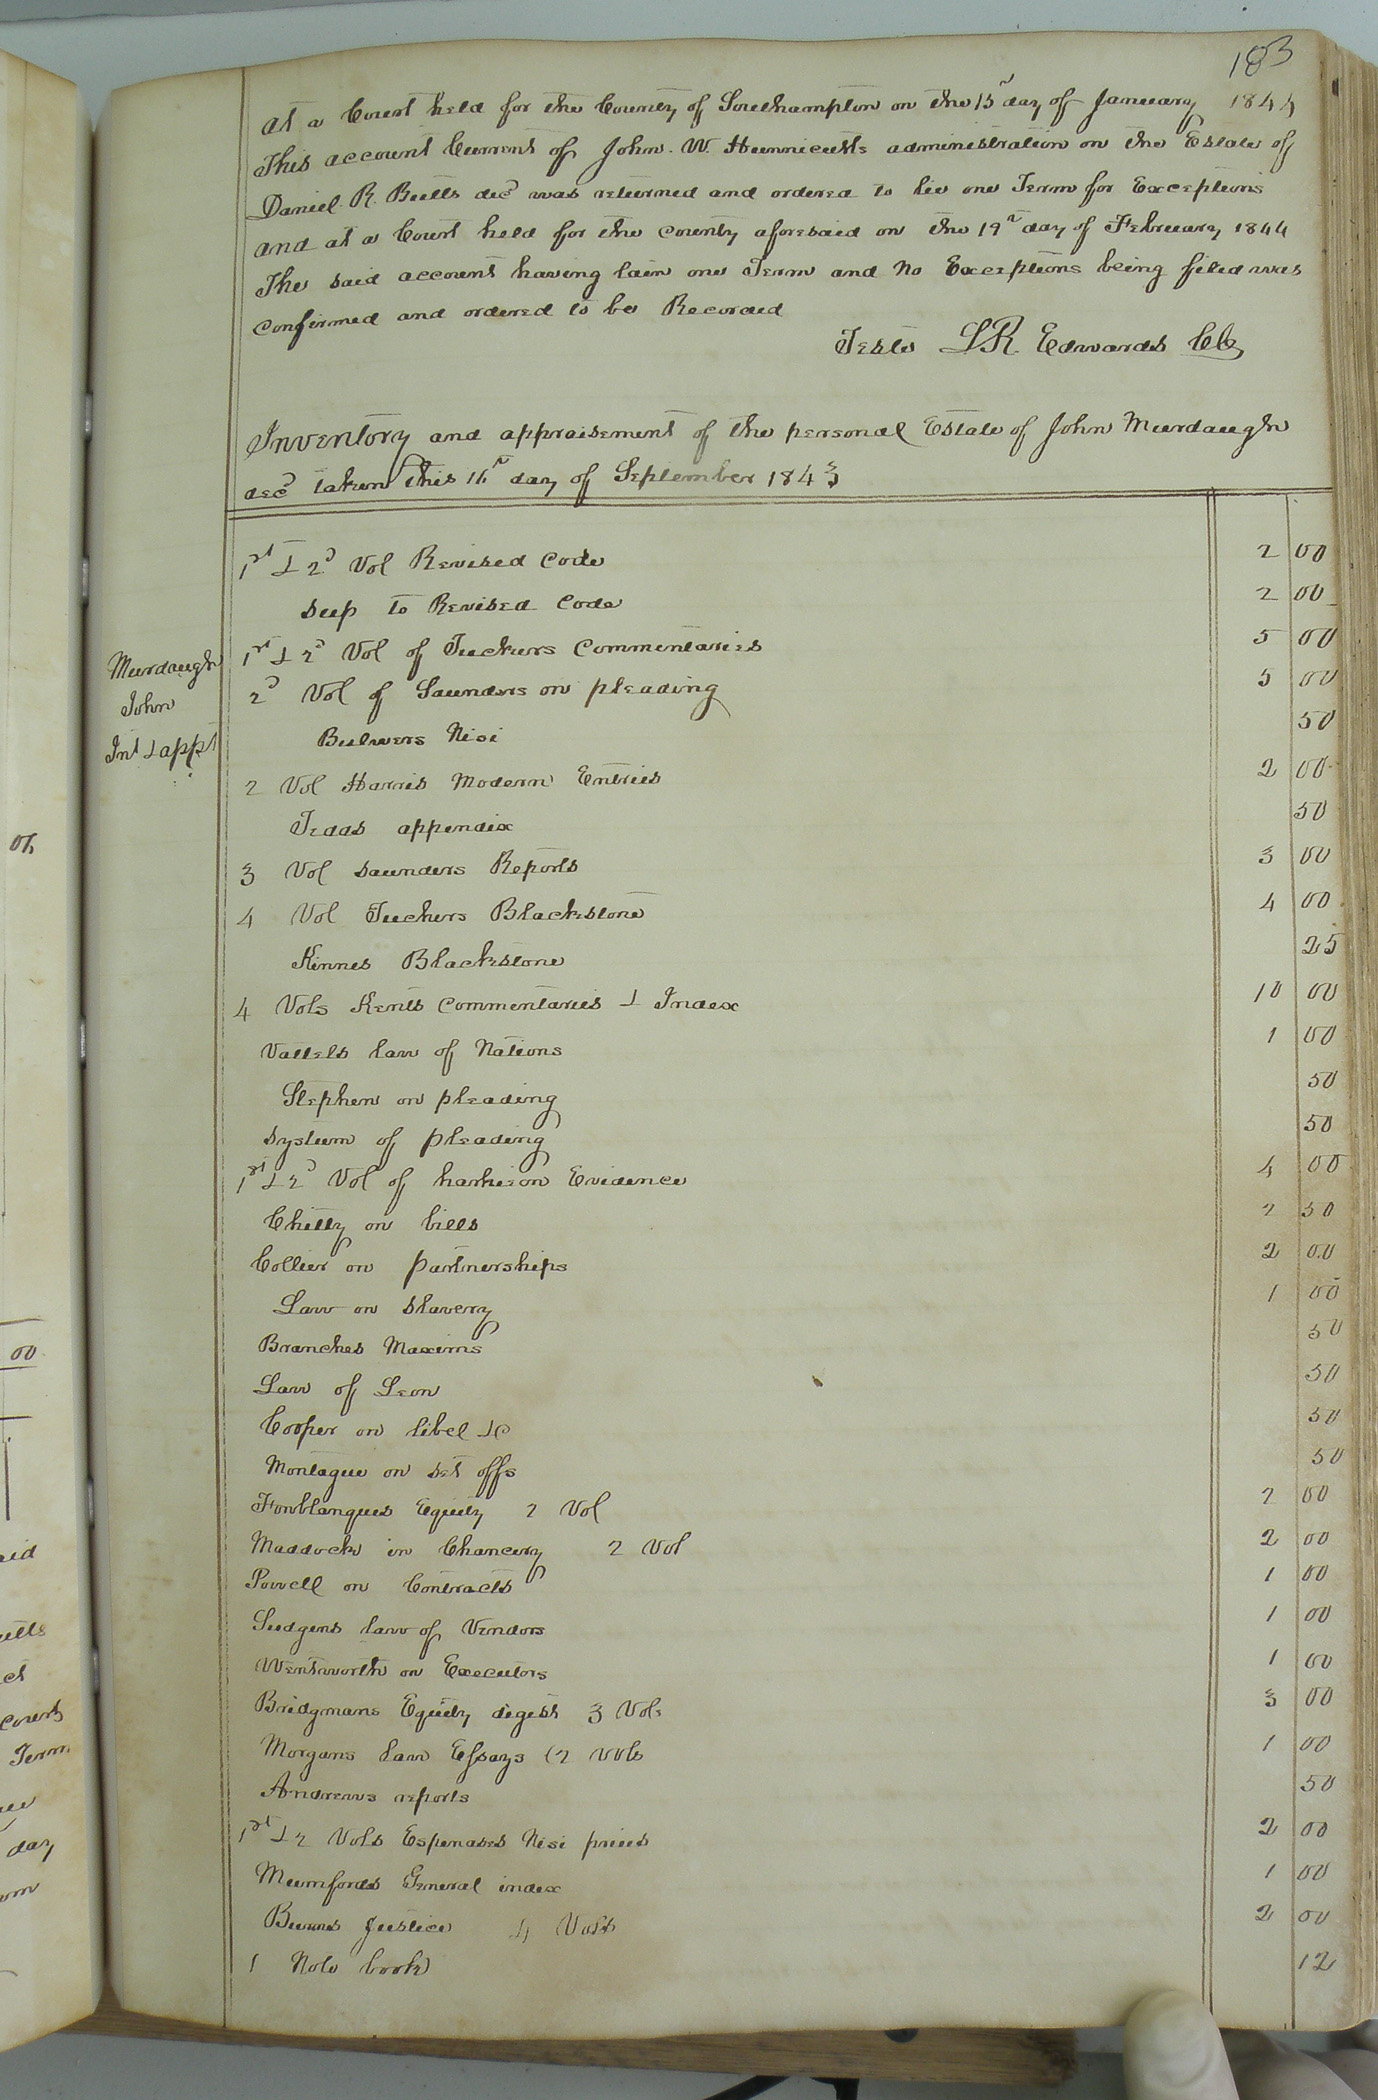 183
At a Court held for the County of Southampton on the 15th day of January 1844
This account Current of John. W. Hunnicutts administration on the Estate of
Daniel. R. Butts decd was returned and ordered to lie one Term for Exceptions
and at a Court held for the County aforesaid on the 19th day of February 1844
The said account having lain one Term and no Exceptions being filed was
confirmed and ordered to be Recorded
Teste L R. Edwards Clk
Inventory and appraisement of the personal Estate of John Murdaugh
decd taken this 16th day of September 1843
1st & 2d Vol Revised Code 2 00
Sup to Revised Code 2 00
Murdaugh
John
Invt & appt
1st & 2d Vol of Tuckers Commentaries 5 00
2d Vol of Saunders on pleading 5 00
Bulwers Nisi 50
2 Vol Harris Modern Entries 2 00
Tedds appendix 50
3 Vol Saunders Reports 3 00
4 Vol Tuckers Blackstone 4 00
Kinnes Blackstone 25
4 Vols Kents Commentaries & Index 10 00
Vattels law of Nations 1 00
Stephen on pleading 50
System of pleading 50
1st & 2d Vol of Evidence 4 00
Chitty on bills 2 50
Collier on partnerships 2 00
Law on slavery 1 00
Branches Maxims 50
Law of Leon 50
Cooper on libel &c 50
Montague on set offs 50
Fonblanques Equity 2 Vol 2 00
Maddock in Chancery 2 Vol 2 00
Powell on Contracts 1 00
Sudgens law of Vendors 1 00
Wentworth on Executors 1 00
Bridgmans Equity digest 3 Vols 3 00
Morgans law Essays (2 Vols 1 00
Andrews reports 50
1st & 2 Vols Espenases Nisi prius 2 00
Mumfords General index 1 00
Burns Justice 4 Vols 2 00
1 Note book 12